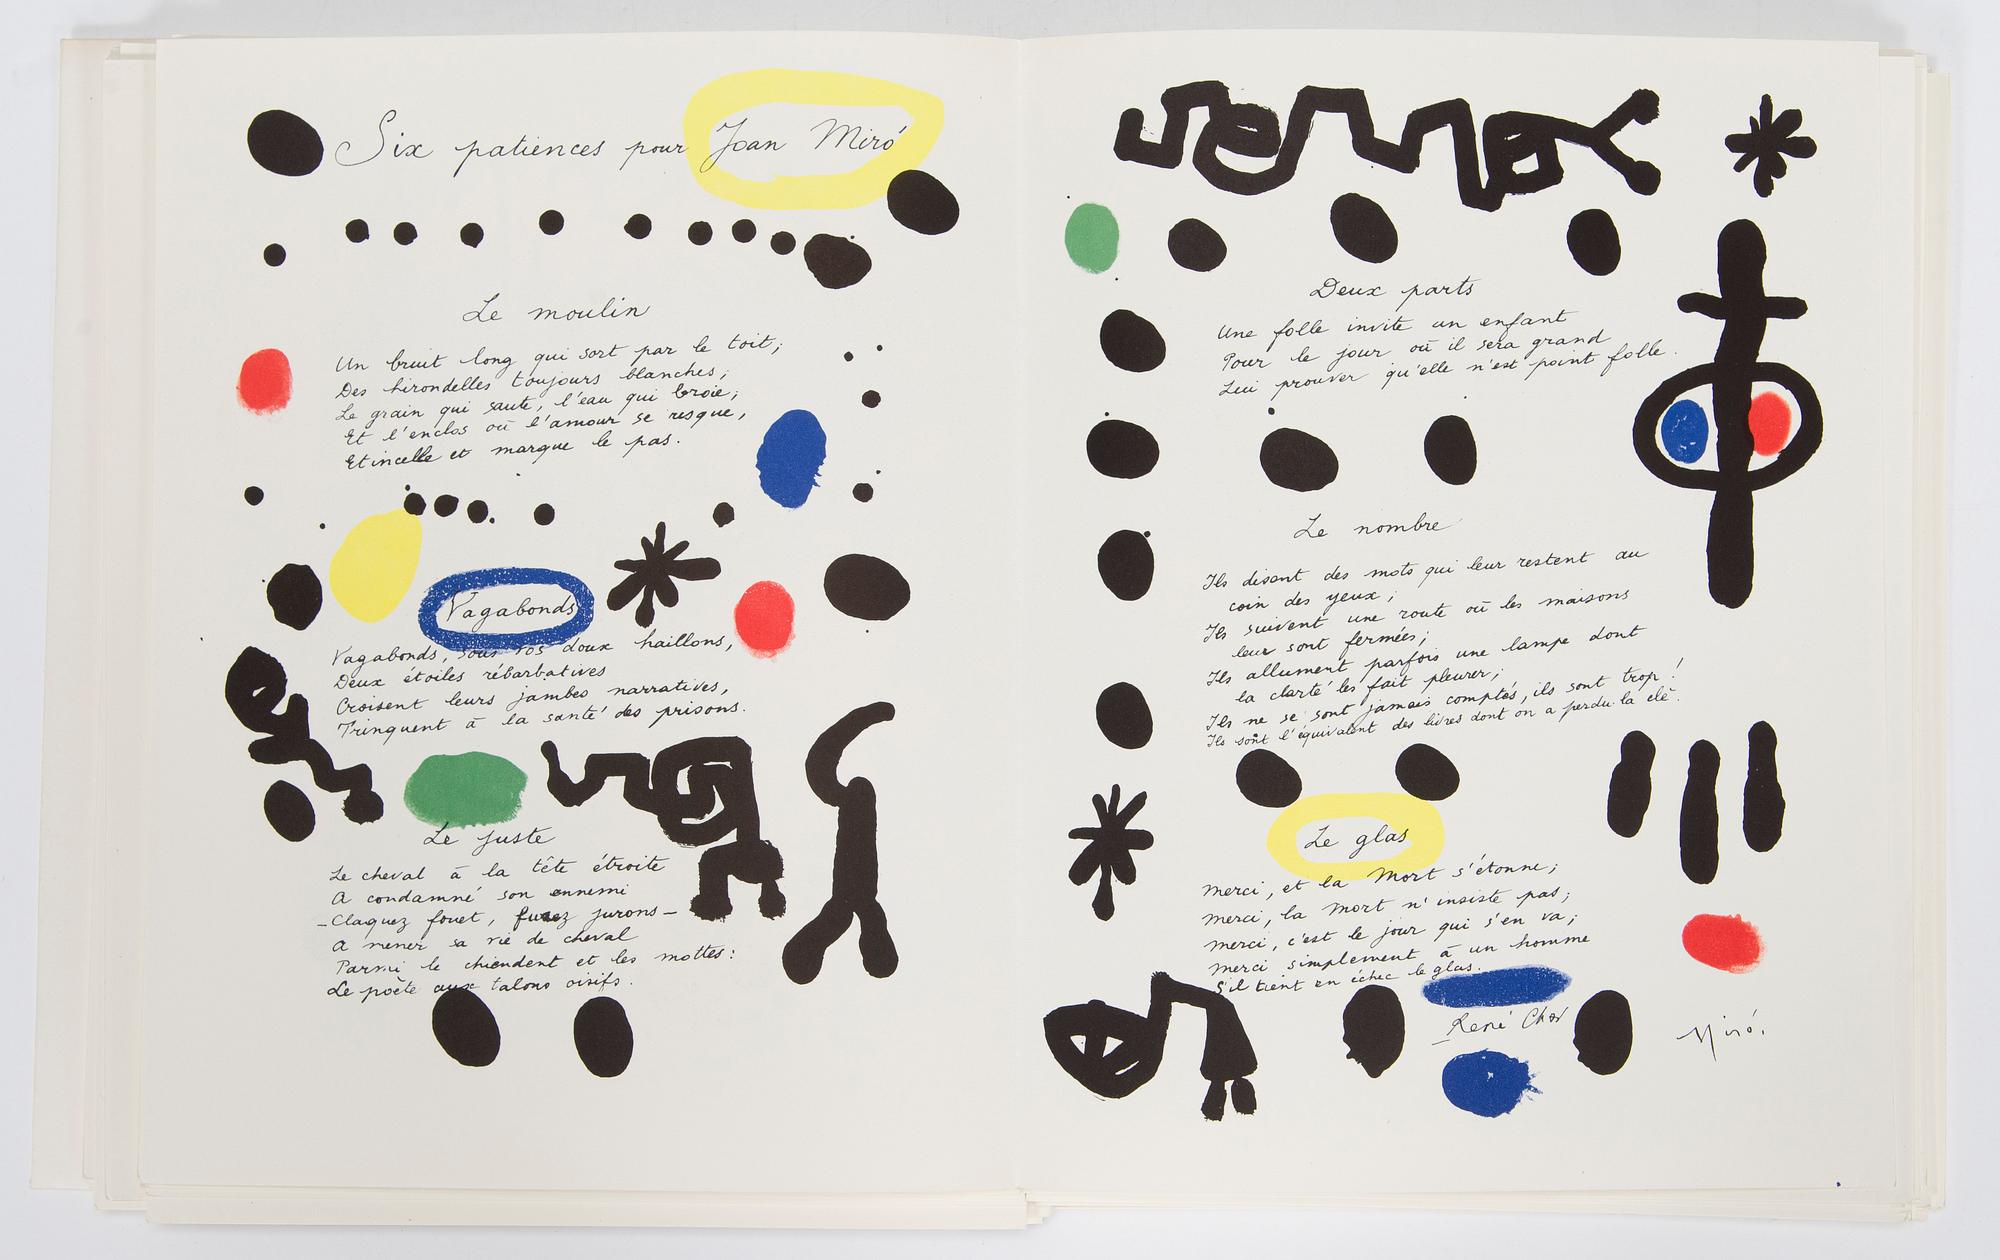 Six patiences pour Joan Miró
Le moulin
Un bruit long qui sort par le toit;
Des hirondelles toujours blanches;
Le grain qui saute, l'eau qui broie;
Et l'enclos où l'amour se risque,
Etincelle et marque le pas.
Vagabonds
Vagabonds, sous vos doux haillons,
Deux étoiles rébarbatives
Croisent leurs jambes narratives,
Trinquent à la santé des prisons.
Le juste
Le cheval à la tête étroite
A condamné son ennemi
—Claquez fouet, fusez jurons—
A mener sa vie de cheval
Parmi le chiendent et les mottes:
Le poète aux talons oisifs.
Deux parts
Une folle invite un enfant
Pour le jour où il sera grand
Lui prouver qu'elle n'est point folle.
Le nombre
Ils disent des mots qui leur restent au
coin des yeux;
Ils suivent une route où les maisons
leur sont fermées;
Ils allument parfois une lampe dont
la clarté les fait pleurer;
Ils ne se sont jamais comptés, ils sont trop!
Ils sont l'équivalent des livres dont on a perdu la clé.
Le glas
Merci, et la Mort s'étonne;
Merci, la Mort n'insiste pas;
Merci, c'est le jour qui s'en va;
Merci simplement à un homme
S'il tient en échec le glas.
René Char
Miró.